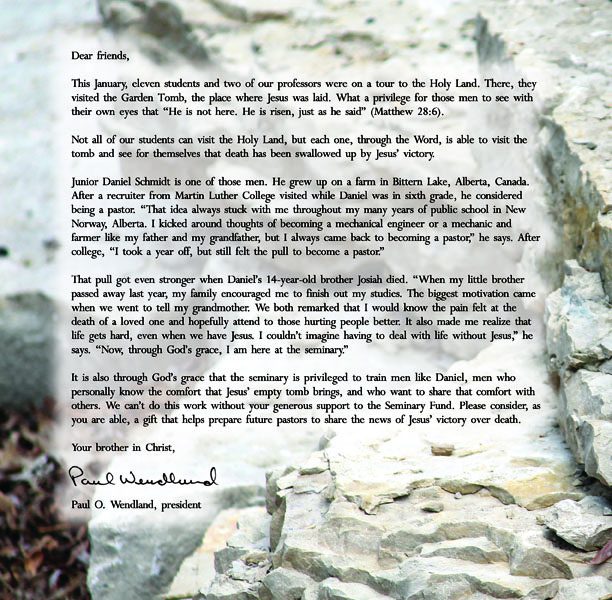 Dear friends,
This January, eleven students and two of our professors were on a tour to the Holy Land. There, they
visited the Garden Tomb, the place where Jesus was laid. What a privilege for those men to see with
their own eyes that “He is not here. He is risen, just as he said” (Matthew 28:6).
Not all of our students can visit the Holy Land, but each one, through the Word, is able to visit the
tomb and see for themselves that death has been swallowed up by Jesus’ victory.
Junior Daniel Schmidt is one of those men. He grew up on a farm in Bittern Lake, Alberta, Canada.
After a recruiter from Martin Luther College visited while Daniel was in sixth grade, he considered
being a pastor. “That idea always stuck with me throughout my many years of public school in New
Norway, Alberta. I kicked around thoughts of becoming a mechanical engineer or a mechanic and
farmer like my father and my grandfather, but I always came back to becoming a pastor,” he says. After
college, “I took a year off, but still felt the pull to become a pastor.”
That pull got even stronger when Daniel’s 14-year-old brother Josiah died. “When my little brother
passed away last year, my family encouraged me to finish out my studies. The biggest motivation came
when we went to tell my grandmother. We both remarked that I would know the pain felt at the
death of a loved one and hopefully attend to those hurting people better. It also made me realize that
life gets hard, even when we have Jesus. I couldn’t imagine having to deal with life without Jesus,” he
says. “Now, through God’s grace, I am here at the seminary.”
It is also through God’s grace that the seminary is privileged to train men like Daniel, men who
personally know the comfort that Jesus’ empty tomb brings, and who want to share that comfort with
others. We can’t do this work without your generous support to the Seminary Fund. Please consider, as
you are able, a gift that helps prepare future pastors to share the news of Jesus’ victory over death.
Your brother in Christ,
Paul Wendland
Paul O. Wendland, president